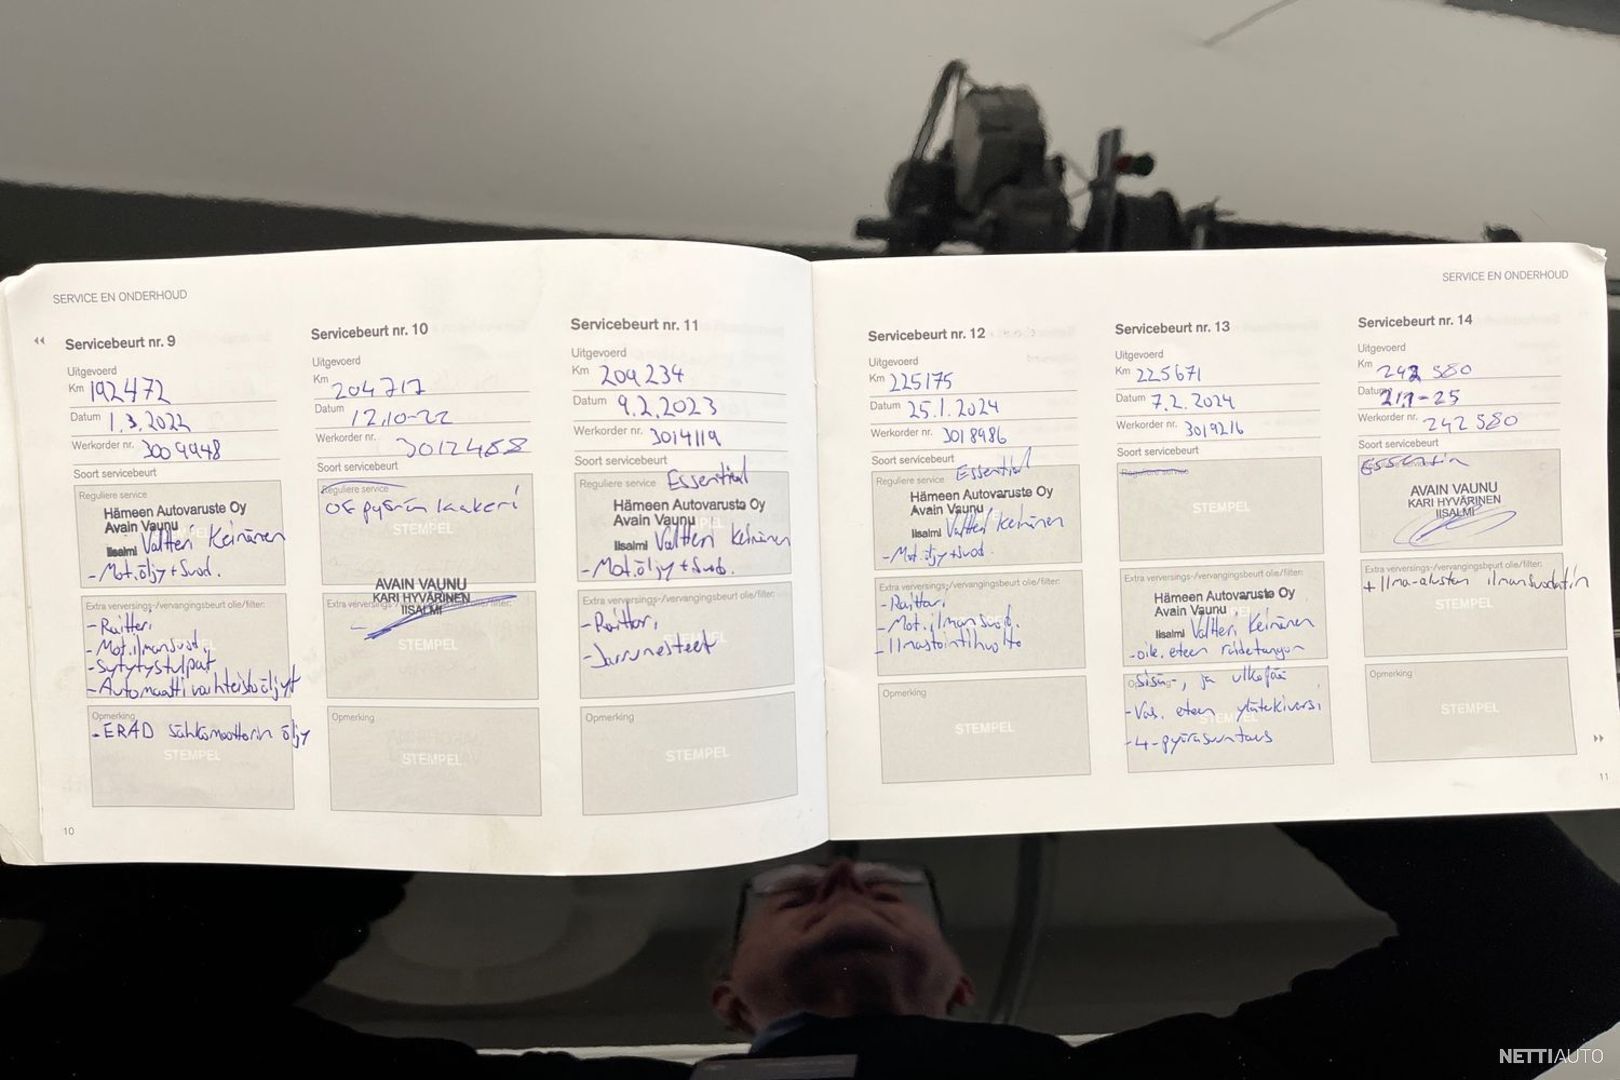 SERVICE EN ONDERHOUD
Servicebeurt nr. 9
Uitgevoerd
Km 192472
Datum 1.3.2022
Werkorder nr. 3009948
Soort servicebeurt
Reguliere service
Hämeen Autovaruste Oy
Avain Vaunu
Iisalmi Valtteri Keinänen
- Mot.öljy + Suod.
Extra verversings-/vervangingsbeurt olie/filter:
- Raitter,
- Mot.ilmansuod,
- Sytytystulpat
- Automaattivaihteistoöljyt
Opmerking
- ERAD Sähkömoottorin öljy
STEMPEL
10
Servicebeurt nr. 10
Uitgevoerd
Km 204717
Datum 12.10-22
Werkorder nr. 3012488
Soort servicebeurt
Reguliere service
OE pyörän laakeri
STEMPEL
AVAIN VAUNU
KARI HYVÄRINEN
IISALMI
Extra verversings-/vervangingsbeurt olie/filter:
STEMPEL
Opmerking
STEMPEL
Servicebeurt nr. 11
Uitgevoerd
Km 209234
Datum 9.2.2023
Werkorder nr. 3014119
Soort servicebeurt
Reguliere service Essential
Hämeen Autovaruste Oy
Avain Vaunu
Iisalmi Valtteri Keinänen
- Mot.öljy + Suod.
Extra verversings-/vervangingsbeurt olie/filter:
- Raitter,
- Jarrunesteet
Opmerking
STEMPEL
SERVICE EN ONDERHOUD
Servicebeurt nr. 12
Uitgevoerd
Km 225175
Datum 25.1.2024
Werkorder nr. 3018986
Soort servicebeurt
Reguliere service Essential
Hämeen Autovaruste Oy
Avain Vaunu
Iisalmi Valtteri Keinänen
- Mot.öljy + Suod.
Extra verversings-/vervangingsbeurt olie/filter:
- Raitter,
- Mot.ilmansuod.
- Ilmastointihuolto
Opmerking
STEMPEL
Servicebeurt nr. 13
Uitgevoerd
Km 225671
Datum 7.2.2024
Werkorder nr. 3019216
Soort servicebeurt
Reguliere service
STEMPEL
Extra verversings-/vervangingsbeurt olie/filter:
Hämeen Autovaruste Oy
Avain Vaunu
Iisalmi Valtteri Keinänen
- oik. eteen raidetangon
Opmerking
sisä-, ja ulkopää
- Vas. eteen ylätukivarsi
- 4-pyöräsuuntaus
Servicebeurt nr. 14
Uitgevoerd
Km 242 580
Datum 21.1-25
Werkorder nr. 242580
Soort servicebeurt
AVAIN VAUNU
KARI HYVÄRINEN
IISALMI
Extra verversings-/vervangingsbeurt olie/filter:
+ Ilma-alusten ilmansuodatin
STEMPEL
Opmerking
STEMPEL
11
NETTIAUTO